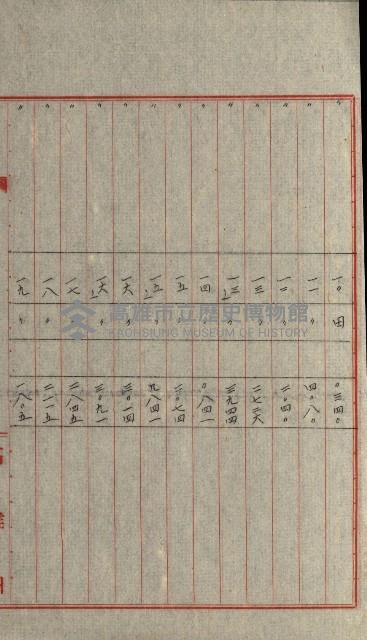 〃 一〇 田 〇三四〇
〃 一一 〃 四〇八〇
〃 一二 〃 二〇四〇
〃 一三 〃 二七三六
〃 一三ノ一 〃 三九四四
〃 一四 〃 〇八四一
〃 一五 〃
〃 一五ノ一 〃 九八四一
〃 一六 〃 三〇一四
〃 一六ノ一 〃 三〇九一
〃 一七 〃 二八四五
〃 一八 〃
〃 一九 〃 一八〇五
高雄市立歷史博物館
KAOHSIUNG MUSEUM OF HISTORY